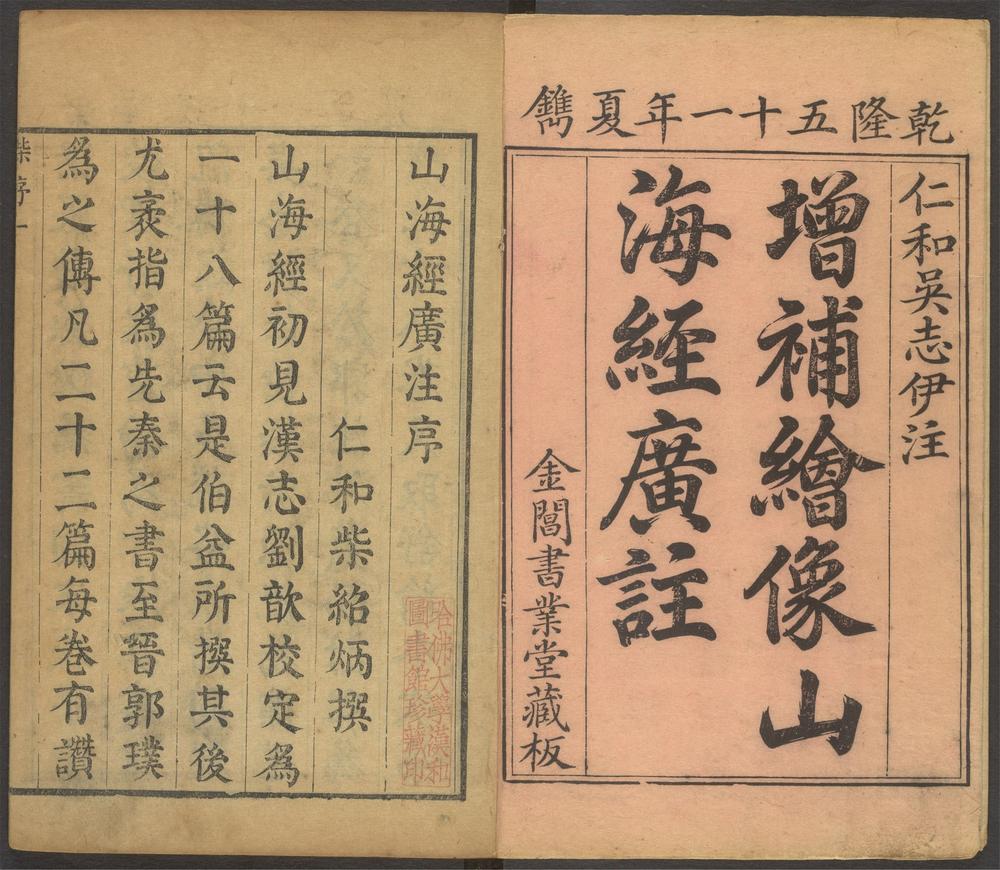 乾隆五十一年夏鐫
仁和吳志伊注
增補繪像山
海經廣註
金閶書業堂藏板
山海經廣注序
仁和柴紹炳撰
山海經初見漢志劉歆校定為
一十八篇云是伯益所撰其後
尤袤指為先秦之書至晉郭璞
為之傳凡二十二篇每卷有讚
柴序一
哈佛大學漢和
圖書館珍藏印